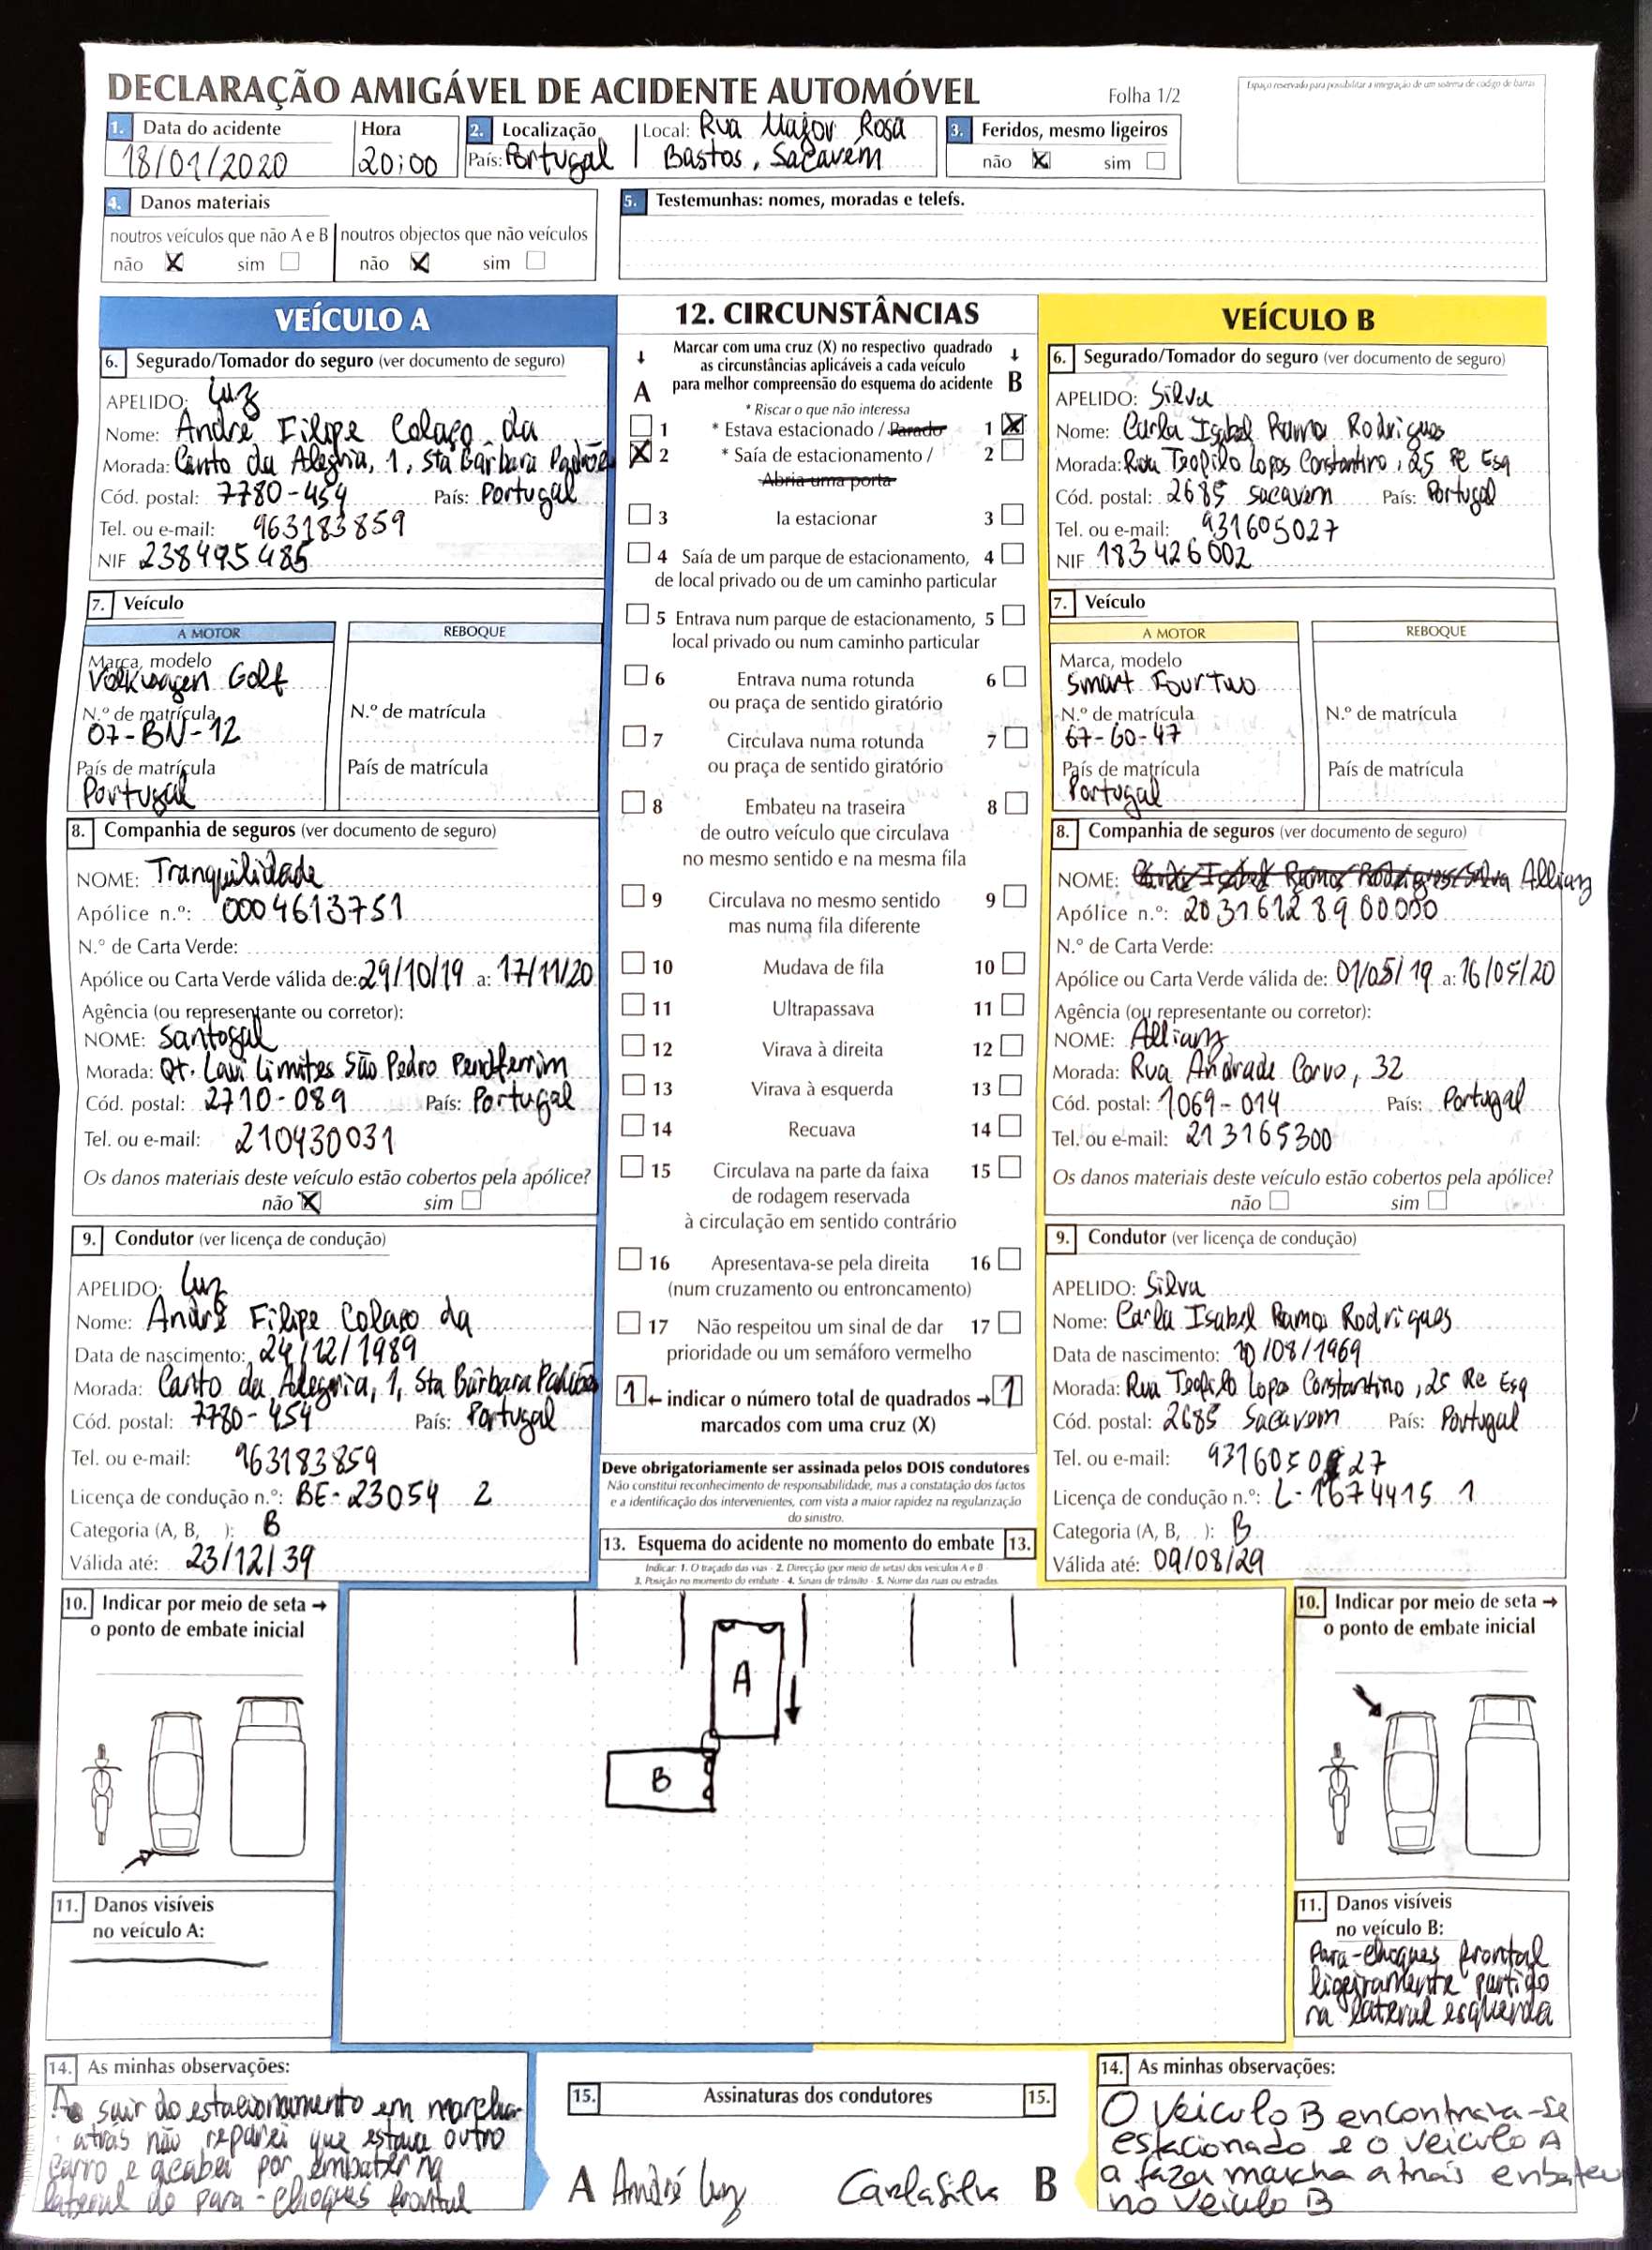 DECLARAÇÃO AMIGÁVEL DE ACIDENTE AUTOMÓVEL
Folha 1/2
Espaço reservado para possibilitar a integração de um sistema de código de barras
1. Data do acidente
18/01/2020
Hora
20:00
2. Localização
País: Portugal
Local: Rua Major Rosa
Bastos, Sacavém
3. Feridos, mesmo ligeiros
não X sim
4. Danos materiais
noutros veículos que não A e B
não X sim
noutros objectos que não veículos
não X sim
5. Testemunhas: nomes, moradas e telefs.
VEÍCULO A
6. Segurado/Tomador do seguro (ver documento de seguro)
APELIDO: Luz
Nome: André Filipe Colaço da
Morada: Canto da Alegria, 1, Sta Bárbara Padrões
Cód. postal: 7780-454 País: Portugal
Tel. ou e-mail: 963183859
NIF 238495485
7. Veículo
A MOTOR
REBOQUE
Marca, modelo
Volkwagen Golf
N.º de matrícula
07-BN-12
País de matrícula
Portugal
N.º de matrícula
País de matrícula
8. Companhia de seguros (ver documento de seguro)
NOME: Tranquilidade
Apólice n.º: 0004613751
N.º de Carta Verde:
Apólice ou Carta Verde válida de: 29/10/19 a: 17/11/20
Agência (ou representante ou corretor):
NOME: Santogal
Morada: Qt. Lavi Limites São Pedro Penaferrim
Cód. postal: 2710-089 País: Portugal
Tel. ou e-mail: 210430031
Os danos materiais deste veículo estão cobertos pela apólice?
não X sim
9. Condutor (ver licença de condução)
APELIDO: Luz
Nome: André Filipe Colaço da
Data de nascimento: 24/12/1989
Morada: Canto da Alegria, 1, Sta Bárbara Padrões
Cód. postal: 7780-454 País: Portugal
Tel. ou e-mail: 963183859
Licença de condução n.º: BE-23054 2
Categoria (A, B, ): B
Válida até: 23/12/39
10. Indicar por meio de seta →
o ponto de embate inicial
11. Danos visíveis
no veículo A:
14. As minhas observações:
Ao sair do estacionamento em marcha
atrás não reparei que estava outro
carro e acabei por embater na
lateral do para-choques frontal
12. CIRCUNSTÂNCIAS
Marcar com uma cruz (X) no respectivo quadrado
as circunstâncias aplicáveis a cada veículo
para melhor compreensão do esquema do acidente
A B
* Riscar o que não interessa
1 * Estava estacionado / Parado 1 X
X 2 * Saía de estacionamento / 2
Abria uma porta
3 Ia estacionar 3
4 Saía de um parque de estacionamento, 4
de local privado ou de um caminho particular
5 Entrava num parque de estacionamento, 5
local privado ou num caminho particular
6 Entrava numa rotunda 6
ou praça de sentido giratório
7 Circulava numa rotunda 7
ou praça de sentido giratório
8 Embateu na traseira 8
de outro veículo que circulava
no mesmo sentido e na mesma fila
9 Circulava no mesmo sentido 9
mas numa fila diferente
10 Mudava de fila 10
11 Ultrapassava 11
12 Virava à direita 12
13 Virava à esquerda 13
14 Recuava 14
15 Circulava na parte da faixa 15
de rodagem reservada
à circulação em sentido contrário
16 Apresentava-se pela direita 16
(num cruzamento ou entroncamento)
17 Não respeitou um sinal de dar 17
prioridade ou um semáforo vermelho
1 ← indicar o número total de quadrados → 1
marcados com uma cruz (X)
Deve obrigatoriamente ser assinada pelos DOIS condutores
Não constitui reconhecimento de responsabilidade, mas a constatação dos factos
e a identificação dos intervenientes, com vista a maior rapidez na regularização
do sinistro.
13. Esquema do acidente no momento do embate 13.
Indicar: 1. O traçado das vias - 2. Direcção (por meio de setas) dos veículos A e B -
3. Posição no momento do embate - 4. Sinais de trânsito - 5. Nome das ruas ou estradas.
A
B
15. Assinaturas dos condutores 15.
A André Luz
Carla Silva B
VEÍCULO B
6. Segurado/Tomador do seguro (ver documento de seguro)
APELIDO: Silva
Nome: Carla Isabel Ramos Rodrigues
Morada: Rua Teofilo Lopes Constantino, 25 Re Esq
Cód. postal: 2685 Sacavem País: Portugal
Tel. ou e-mail: 931605027
NIF 183426002
7. Veículo
A MOTOR
REBOQUE
Marca, modelo
Smart Fourtwo
N.º de matrícula
67-60-47
País de matrícula
Portugal
N.º de matrícula
País de matrícula
8. Companhia de seguros (ver documento de seguro)
NOME: Carla Isabel Ramos Rodrigues Silva Allianz
Apólice n.º: 20316128900000
N.º de Carta Verde:
Apólice ou Carta Verde válida de: 01/05/19 a: 16/05/20
Agência (ou representante ou corretor):
NOME: Allianz
Morada: Rua Andrade Corvo, 32
Cód. postal: 1069-014 País: Portugal
Tel. ou e-mail: 213165300
Os danos materiais deste veículo estão cobertos pela apólice?
não sim
9. Condutor (ver licença de condução)
APELIDO: Silva
Nome: Carla Isabel Ramos Rodrigues
Data de nascimento: 10/08/1969
Morada: Rua Teofilo Lopes Constantino, 25 Re Esq
Cód. postal: 2685 Sacavem País: Portugal
Tel. ou e-mail: 931605027
Licença de condução n.º: L-1674415 1
Categoria (A, B, ): B
Válida até: 09/08/29
10. Indicar por meio de seta →
o ponto de embate inicial
11. Danos visíveis
no veículo B:
Para-choques frontal
ligeiramente partido
na lateral esquerda
14. As minhas observações:
O Veiculo B encontrava-se
estacionado e o veiculo A
a fazer marcha atrais enbateu
no veiculo B